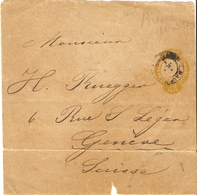 Monsieur
H. Kuegger
6 Rue St Léger
Genève
Suisse